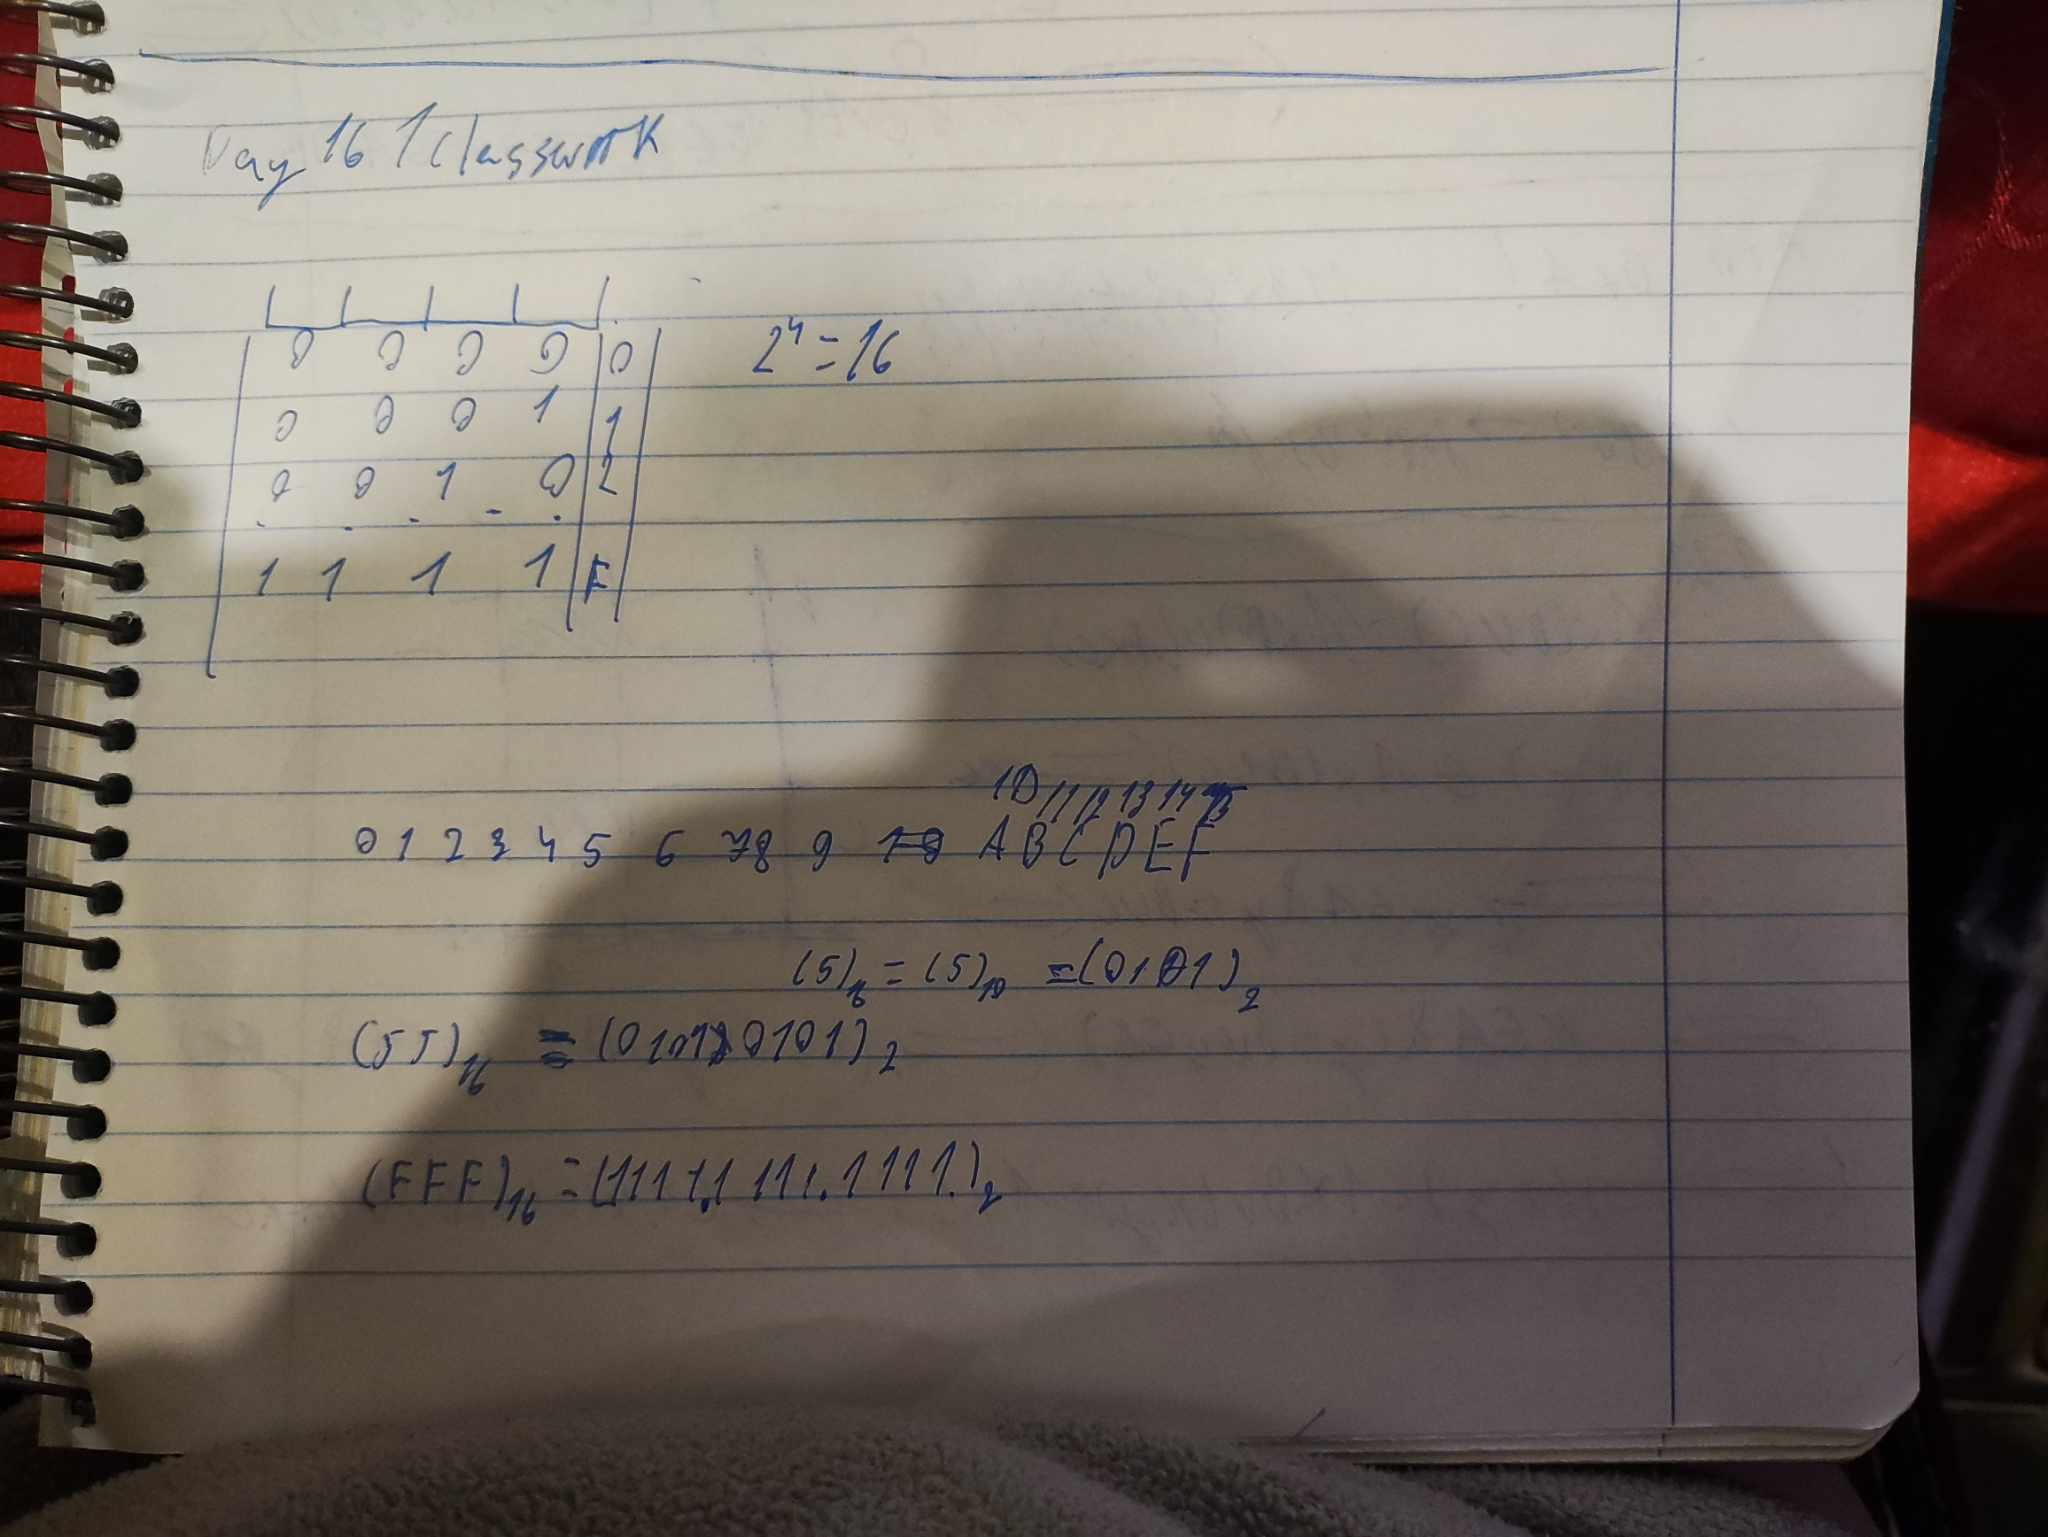 Day 16 / classwork
0 0 0 0 | 0 2⁴ = 16
0 0 0 1 | 1
0 0 1 0 | 2
. . . - .
1 1 1 1 | F
10 11 12 13 14 15
0 1 2 3 4 5 6 7 8 9 A B C D E F
(5)₁₆ = (5)₁₀ = (0101)₂
(55)₁₆ = (01010101)₂
(FFF)₁₆ = (1111.1111.1111.)₂